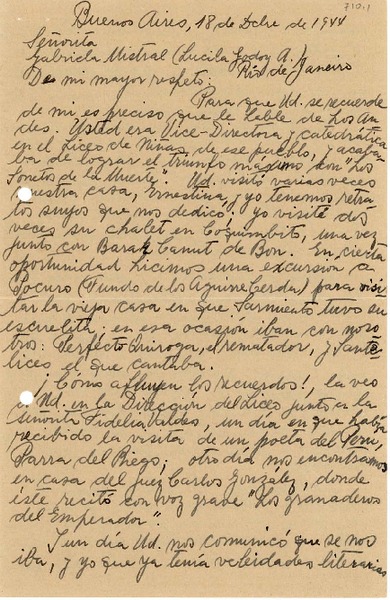 710.1
Buenos Aires, 18 de Dcbre de 1944
Señorita
Gabriela Mistral (Lucila Godoy A.)
Rio de Janeiro
De mi mayor respeto:
Para que Ud. se recuerde
de mi es preciso que le hable de Los An-
des. Usted era Vice-Directora y catedrática
en el Liceo de Niñas de ese pueblo, y acaba-
ba de lograr el triunfo máximo con "Los
Sonetos de la Muerte". Ud. visitó varias veces
nuestra casa, Ernestina y yo tenemos retra-
tos suyos que nos dedicó; yo visité dos
veces su chalet en Coquimbito, una vez
junto con Barak Canut de Bon. En cierta
oportunidad hicimos una excursión a
Pocuro (Fundo de los Aguirre Cerda) para visi-
tar la vieja casa en que Sarmiento tuvo su
escuelita; en esa ocasión iban con noso-
tros: Perfecto Quiroga, el rematador, y Santé-
lices el que cantaba.
¡Cómo afluyen los recuerdos!, la veo
a Ud. en la Dirección del Liceo junto a la
señorita Fidelia Valdés, un día en que había
recibido la visita de un poeta del Perú,
Parra del Riego; otro día nos encontramos
en casa del juez Carlos González, donde
éste recitó con voz grave "Los granaderos
del Emperador".
Y un día Ud. nos comunicó que se nos
iba, y yo que ya tenía veleidades literarias